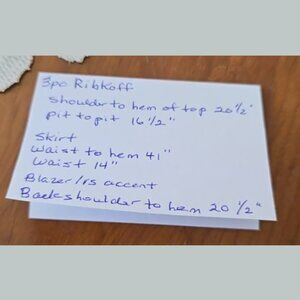 3pc Ribkoff
shoulder to hem of top 20 1/2"
pit to pit 16 1/2"
Skirt
Waist to hem 41"
Waist 14"
Blazer/rs accent
Back shoulder to hem 20 1/2"